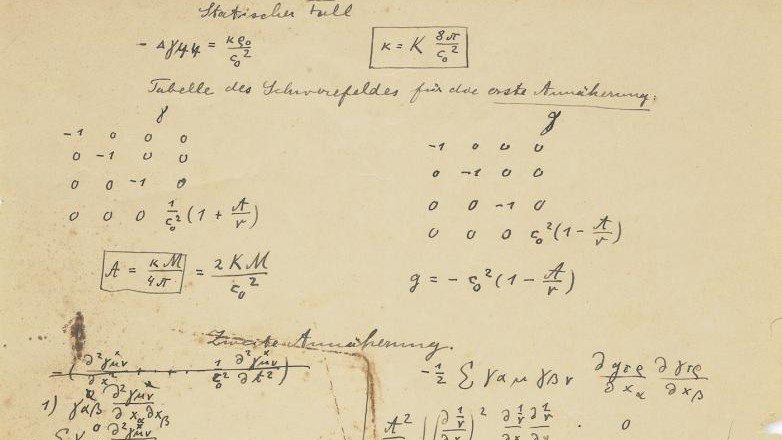 Statischer Fall
- Δγ44 = κρ0/c0²
κ = K 8π/c0²
Tabelle des Schwerefeldes für die erste Annäherung.
γ
-1 0 0 0
0 -1 0 0
0 0 -1 0
0 0 0 1/c0² (1 + A/r)
g
-1 0 0 0
0 -1 0 0
0 0 -1 0
0 0 0 c0² (1 - A/r)
A = κM/4π = 2KM/c0²
g = - c0² (1 - A/r)
Zweite Annäherung.
= (∂²γ×μν/∂x² + · + · 1/c0² ∂²γ×μν/∂t²)
1) γαβ ∂²γμν/∂xα∂xβ
- 1/2 Σ γαμ γβν ∂gτρ/∂xα ∂γτρ/∂xβ